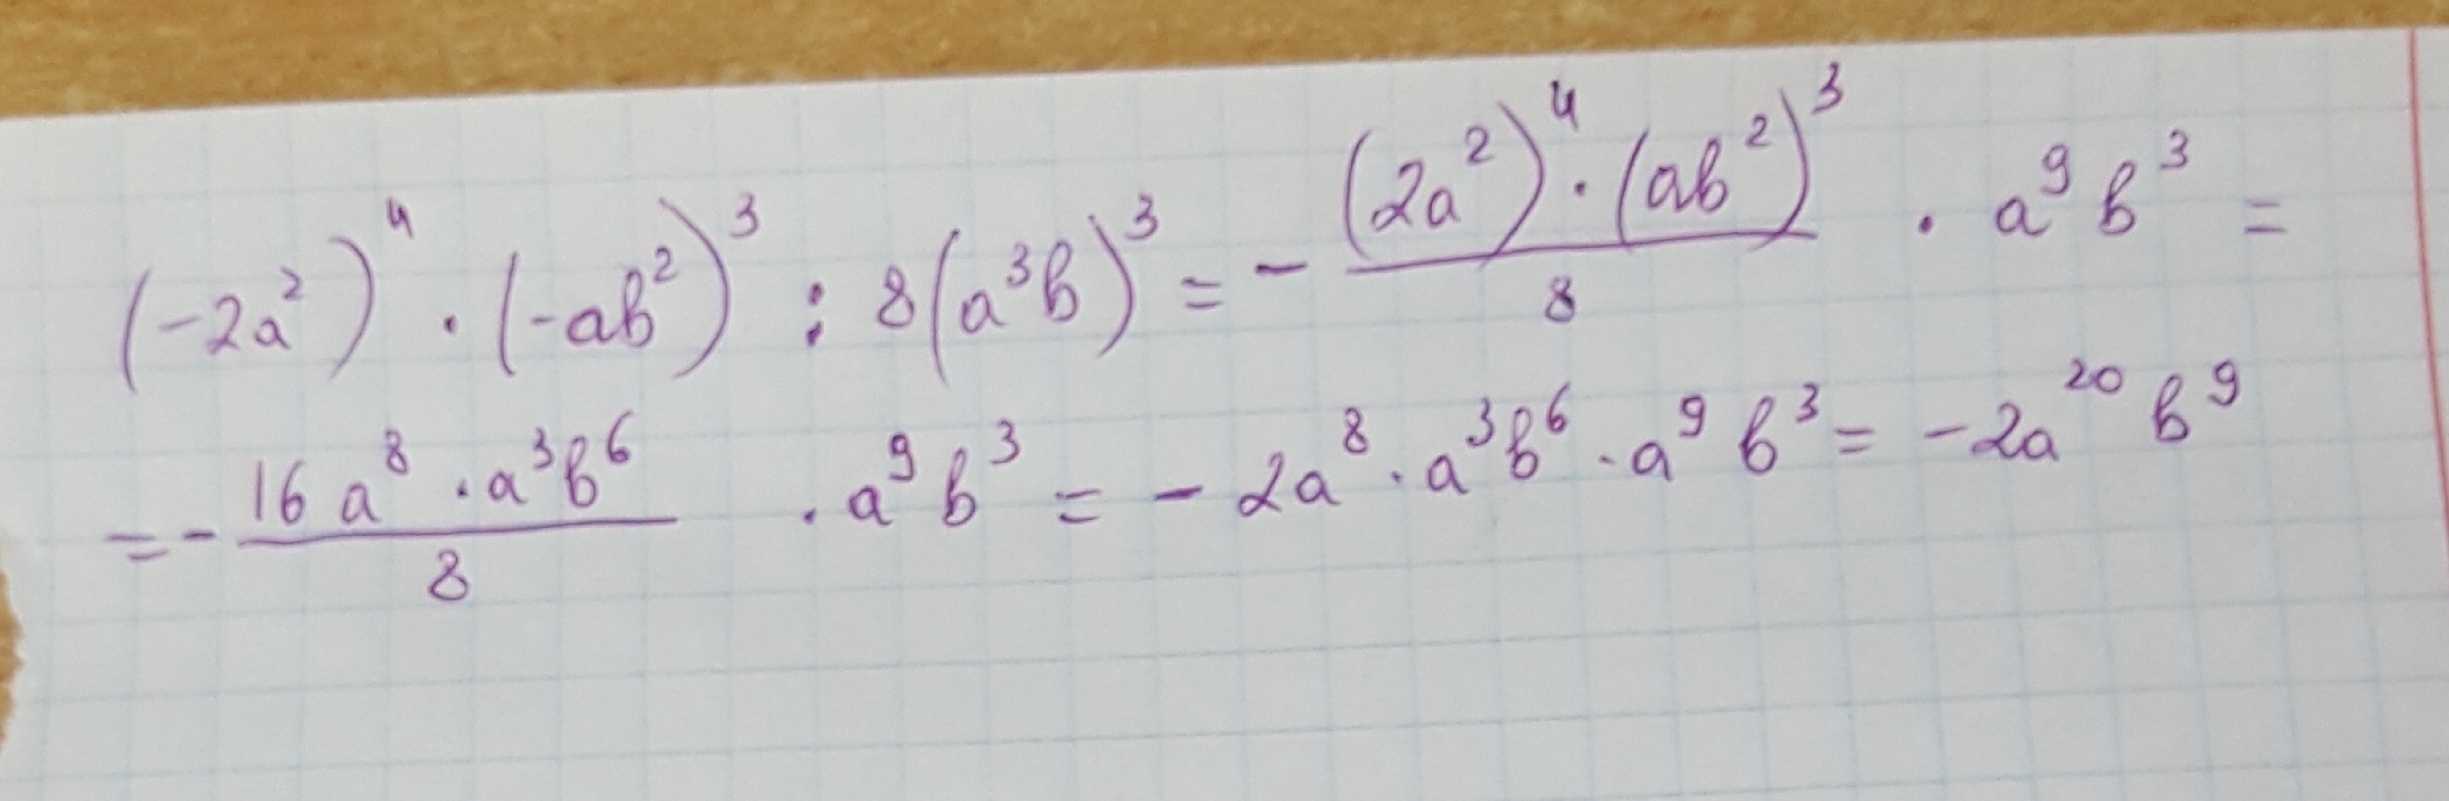 (-2a²)⁴ · (-ab²)³ : 8(a³b)³ = - \frac{(2a²)⁴ · (ab²)³}{8} · a⁹b³ =
= - \frac{16a⁸ · a³b⁶}{8} · a⁹b³ = - 2a⁸ · a³b⁶ · a⁹b³ = - 2a²⁰b⁹